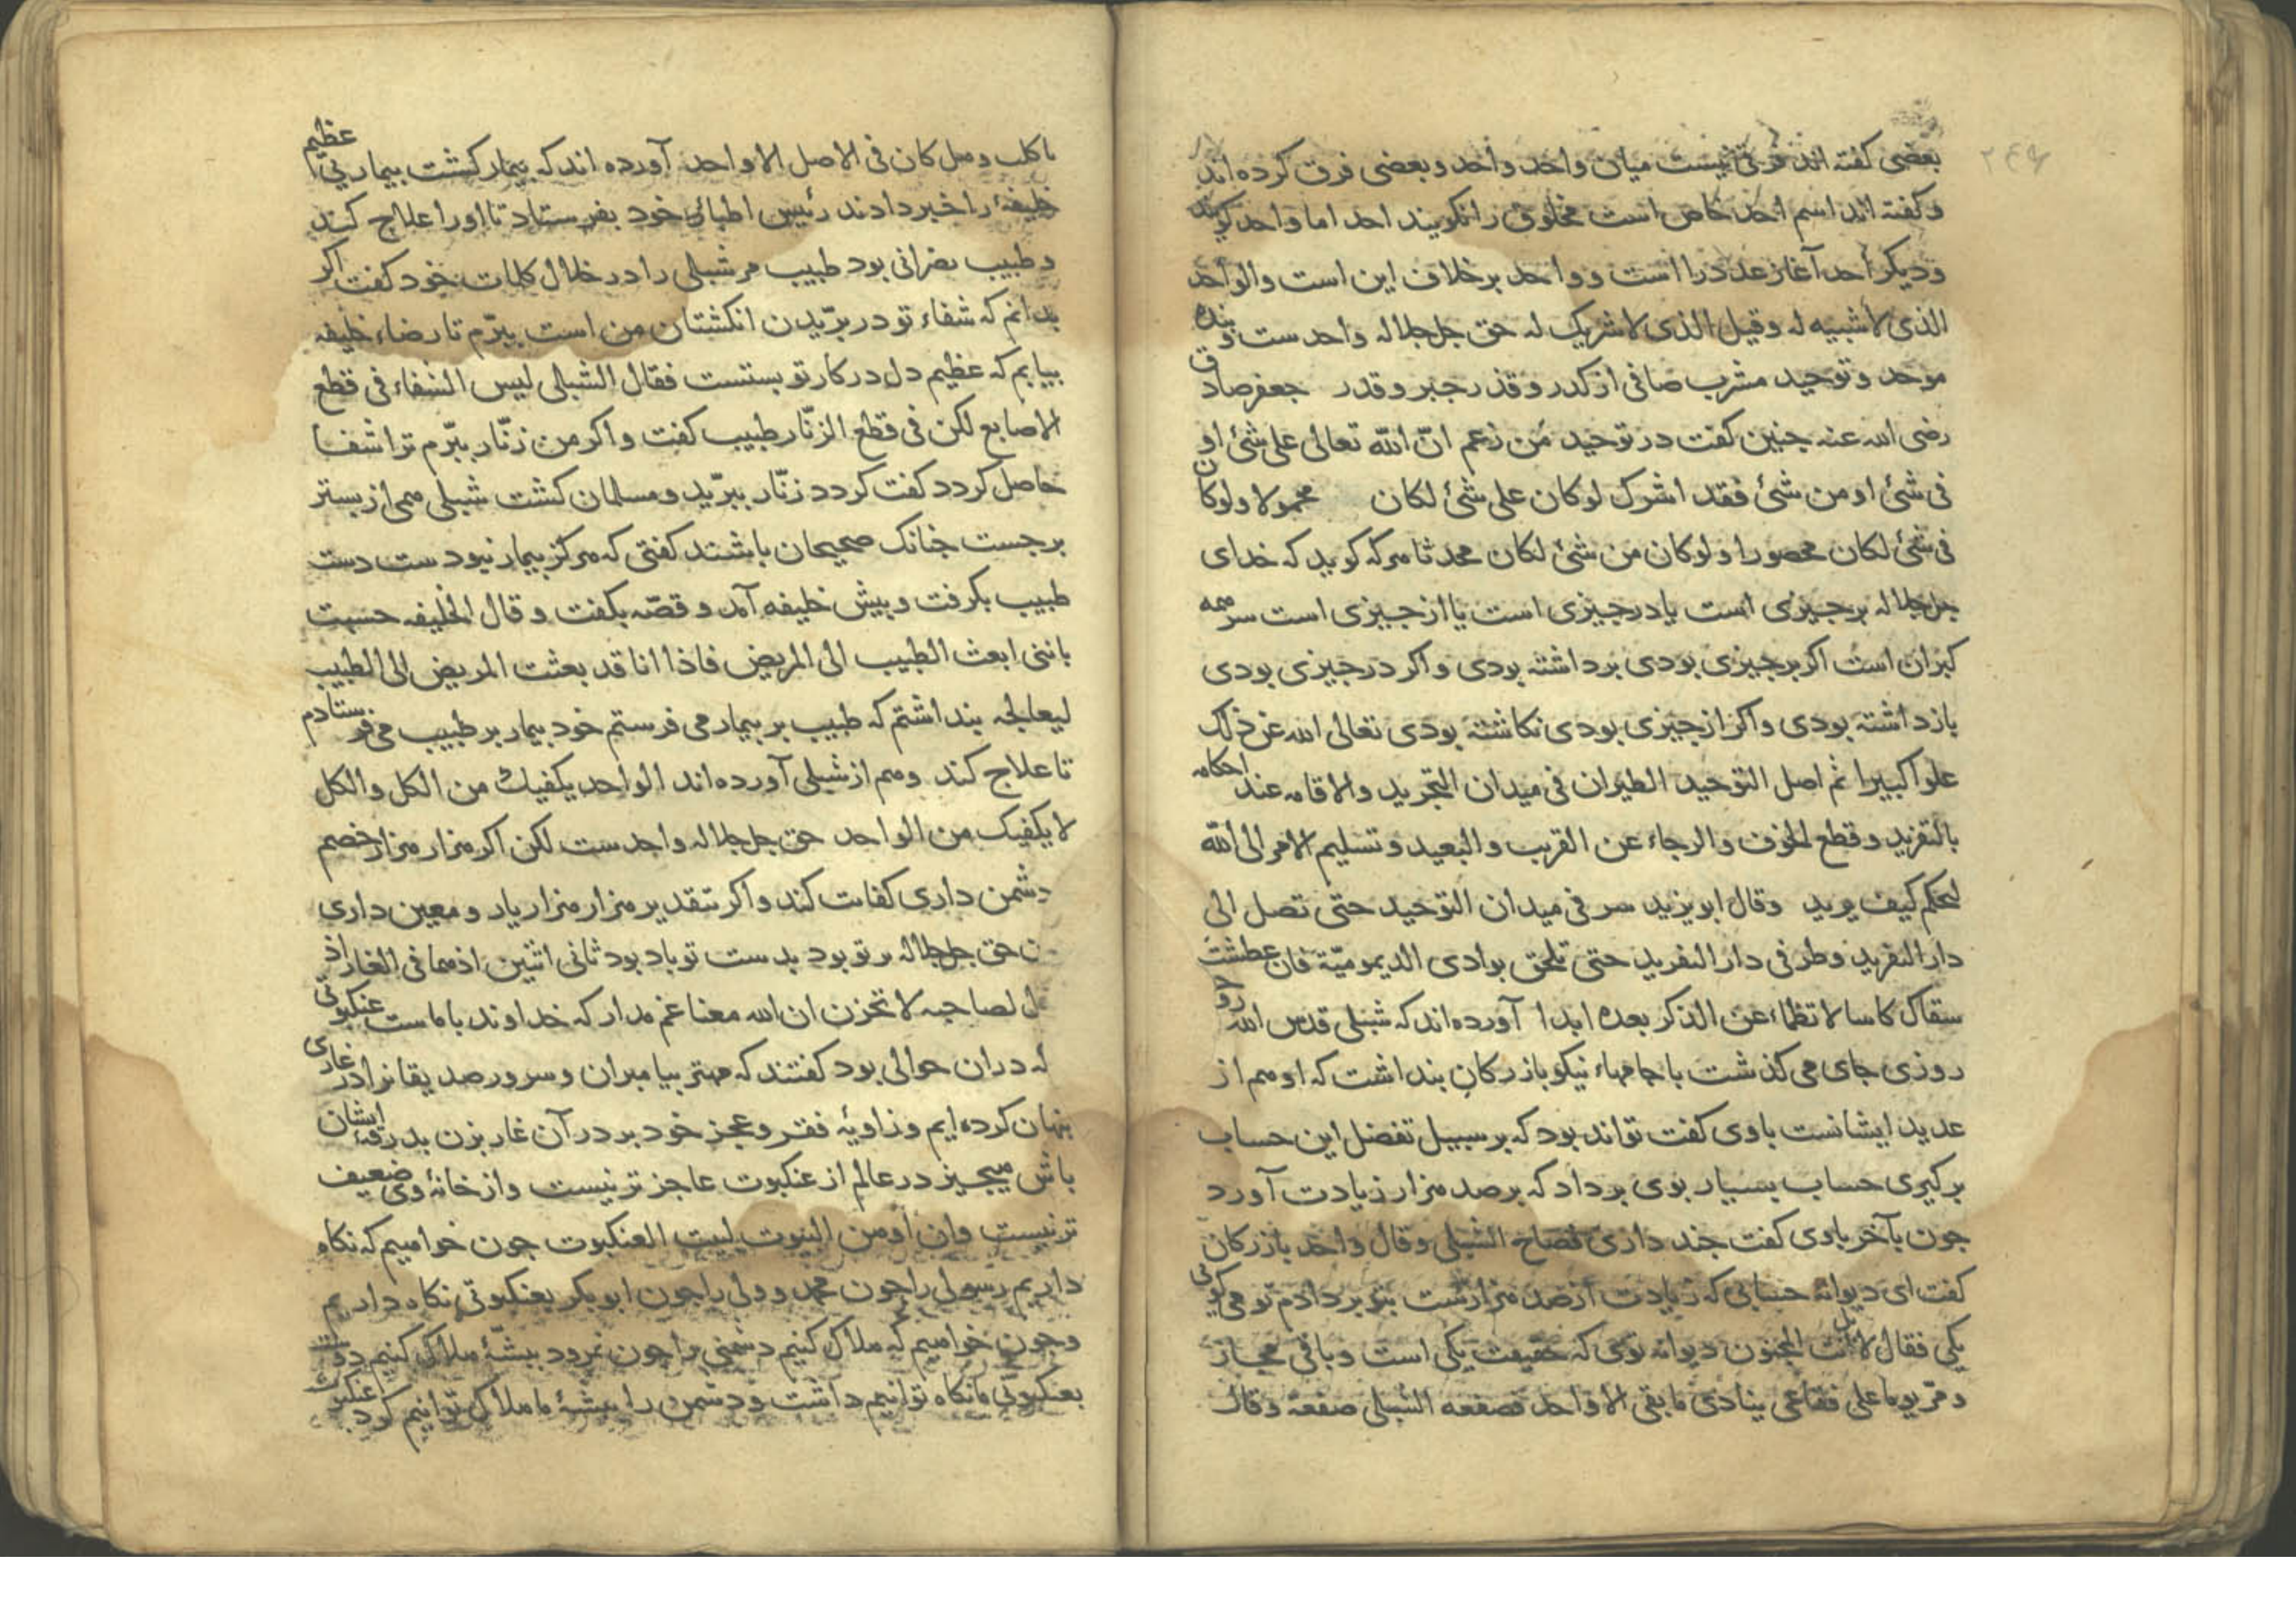 ۲۴۹
بعضی کفته اند فرقی نیست میان واحد واحد و بعضی فرق کرده اند
وکفته اند اسم احد خاص است مخلوق را نکویند احد اما واحد کویند
و دیکر احد آغاز عدد را است و واحد بر خلاف این است والواحد
الذی لا شبیه له وقیل الذی لا شریک له حق جل جلاله واحد ست و بنده
موحد و توحید مشرب صافی از کدر و قذر جبر و قدر جعفر صادق
رضی الله عنه جنین کفت در توحید من زعم انّ الله تعالی علی شئ او
فی شئ او من شئ فقد اشرک لو کان علی شئ لکان محمولا ولو کان
فی شئ لکان محصورا ولو کان من شئ لکان محدثا هرکه کوید که خدای
جل جلاله بر جیزی است یا در جیزی است یا از جیزی است سر همه
کبران است اکر بر جیزی بودی برداشته بودی واکر در جیزی بودی
بازداشته بودی واکر از جیزی بودی نکاشته بودی تعالی الله عن ذلک
علوا کبیرا ثم اصل التوحید الطیران فی میدان التجرید والاقامه عند احکامه
بالتفرید وقطع الخوف والرجاء عن القریب والبعید وتسلیم الامر الی الله
لیحکم کیف یرید وقال ابو یزید سر فی میدان التوحید حتی تصل الی
دار التفرید وطر فی دار التفرید حتی تلحق بوادی الدیمومیّة فان عطشت
سقاک کاسا لا تظماء عن الذکر بعده ابدا آورده اند که شبلی قدس الله روحه
روزی جای می کذشت با جامهاء نیکو بازرکان بنداشت که او هم از
عدید ایشانست باوی کفت تواند بود که بر سبیل تفضل این حساب
برکیری حساب بسیار بوی برداد که بر صد هزار زیادت آورد
جون بآخر باوی کفت جند داری فصاح الشبلی وقال واحد بازرکان
کفت ای دیوانه حسابی که زیادت از صد هزارست بتو بر دادم تو می کوئی
یکی فقال لا بل انت المجنون دیوانه توی که حقیقت یکی است و باقی مجاز
و مرّ یوما علی فقاعی ینادی ما بقی الا واحد فصفعه الشبلی صفعة وقال
یا کلب وهل کان فی الاصل الا واحد آورده اند که بیمار کشت بیماریی عظیم
خلیفه را خبر دادند رئیس اطباء خود بفرستاد تا او را علاج کند
و طبیب نصرانی بود طبیب مر شبلی را در خلال کلمات خود کفت اکر
بدانم که شفاء تو در بریدن انکشتان من است ببرّم تا رضاء خلیفه
بیابم که عظیم دل در کار تو بستست فقال الشبلی لیس الشفاء فی قطع
الاصابع لکن فی قطع الزنّار طبیب کفت واکر من زنّار ببرّم ترا شفا
حاصل کردد کفت کردد زنّار ببرّید و مسلمان کشت شبلی هم از بستر
برجست جنانک صحیحان باشند کفتی که هرکز بیمار نبودست دست
طبیب بکرفت و بیش خلیفه آمد و قصّه بکفت و قال الخلیفه حسبت
باننی ابعث الطبیب الی المریض فاذا انا قد بعثت المریض الی الطبیب
لیعالجه بنداشتم که طبیب بر بیمار می فرستم خود بیمار بر طبیب می فرستادم
تا علاج کند وهم از شبلی آورده اند الواحد یکفیک من الکل والکل
لا یکفیک من الواحد حق جل جلاله واحدست لکن اکر هزار هزار خصم
دشمن داری کفایت کند واکر بتقدیر هزار هزار یار و معین داری
حق جل جلاله بر تو بود بدست تو باد بود ثانی اثنین اذهما فی الغار اذ
لصاحبه لا تحزن ان الله معنا غم مدار که خداوند با ماست عنکبوتی
که دران حوالی بود کفتند که مهتر بیامبران و سرور صدیقانرا در غاری
بنهان کرده ایم و زاویه فقر و عجز خود بر در آن غار بزن بدرقه ایشان
باش هیجیز در عالم از عنکبوت عاجز تر نیست و از خانۀ وی ضعیف
تر نیست وان اوهن البیوت لبیت العنکبوت جون خواهیم که نکاه
داریم رسولی را جون محمد و ولی را جون ابو بکر بعنکبوتی نکاه داریم
و جون خواهیم که هلاک کنیم دشمنی را جون نمرود ببشّۀ هلاک کنیم دوست
بعنکبوتی ما نکاه توانیم داشت و دشمن را ببشۀ ما هلاک توانیم کرد عنکبوت